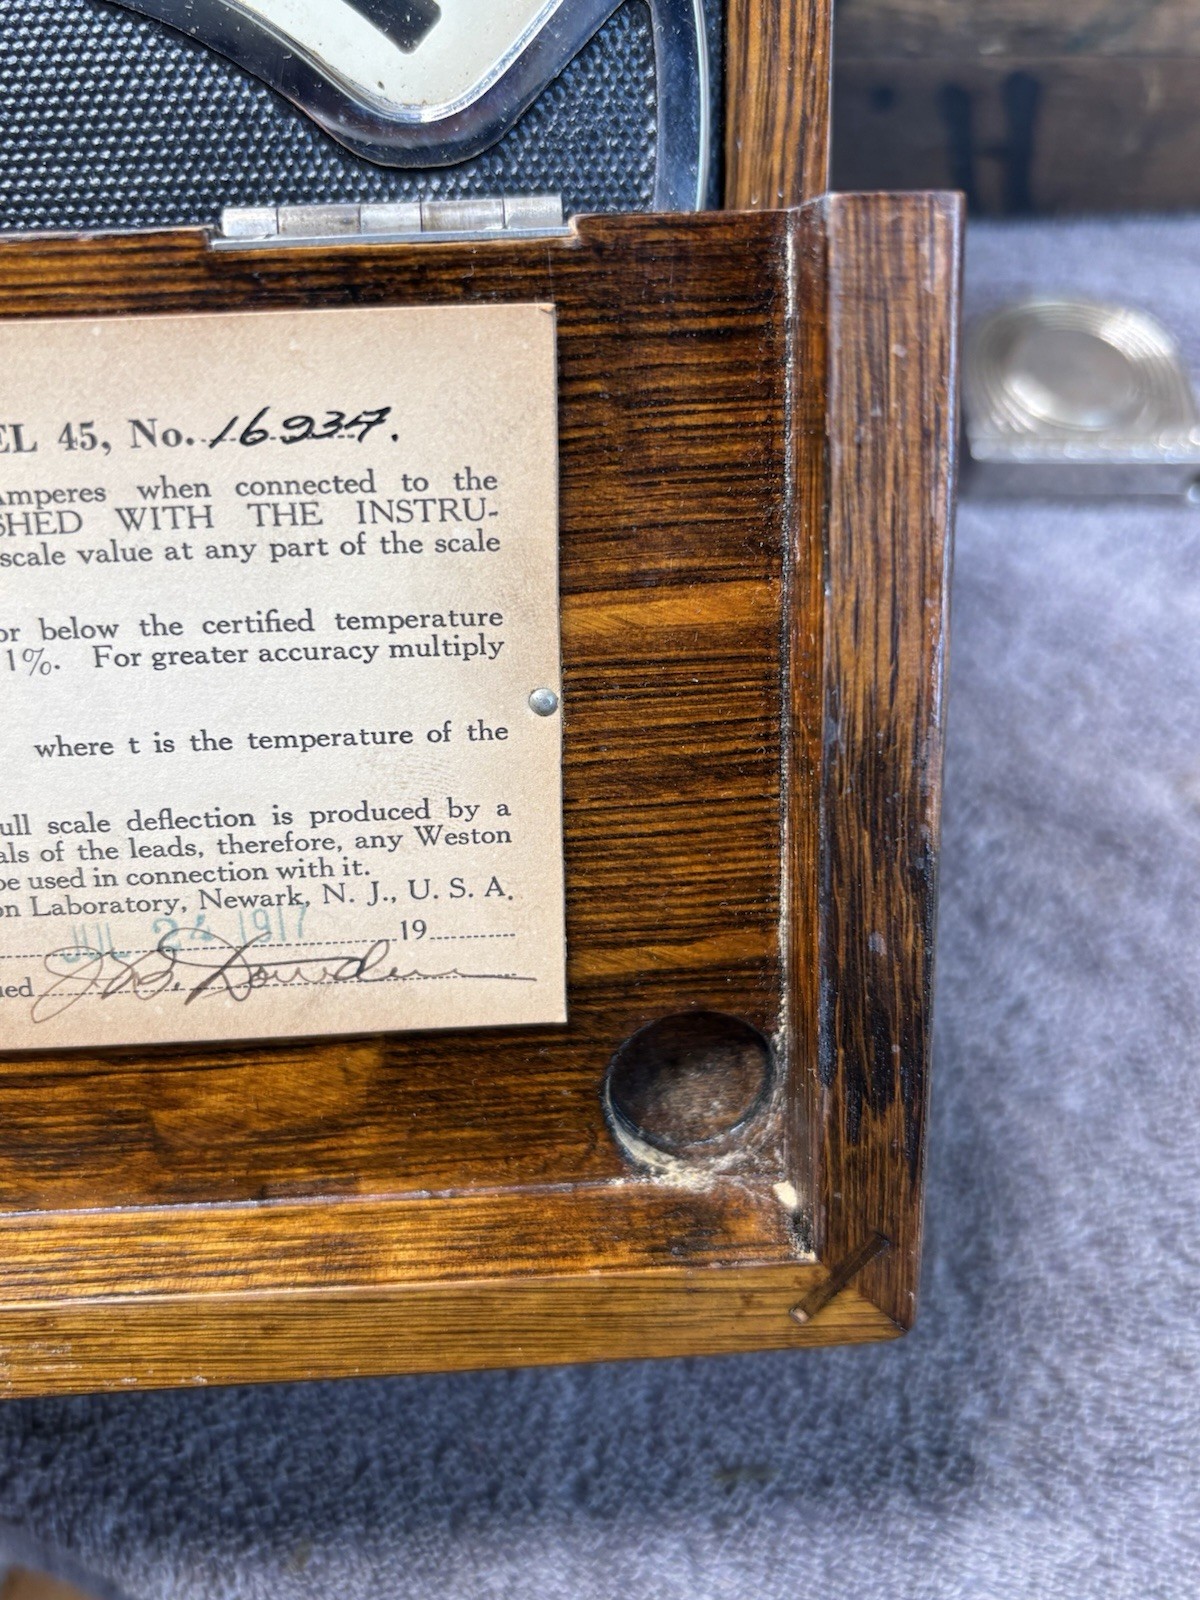 H
EL 45, No. 16937.
Amperes when connected to the
SHED WITH THE INSTRU-
scale value at any part of the scale
or below the certified temperature
1%. For greater accuracy multiply
where t is the temperature of the
ull scale deflection is produced by a
als of the leads, therefore, any Weston
be used in connection with it.
on Laboratory, Newark, N. J., U. S. A.
JUL 24 1917 19
ned